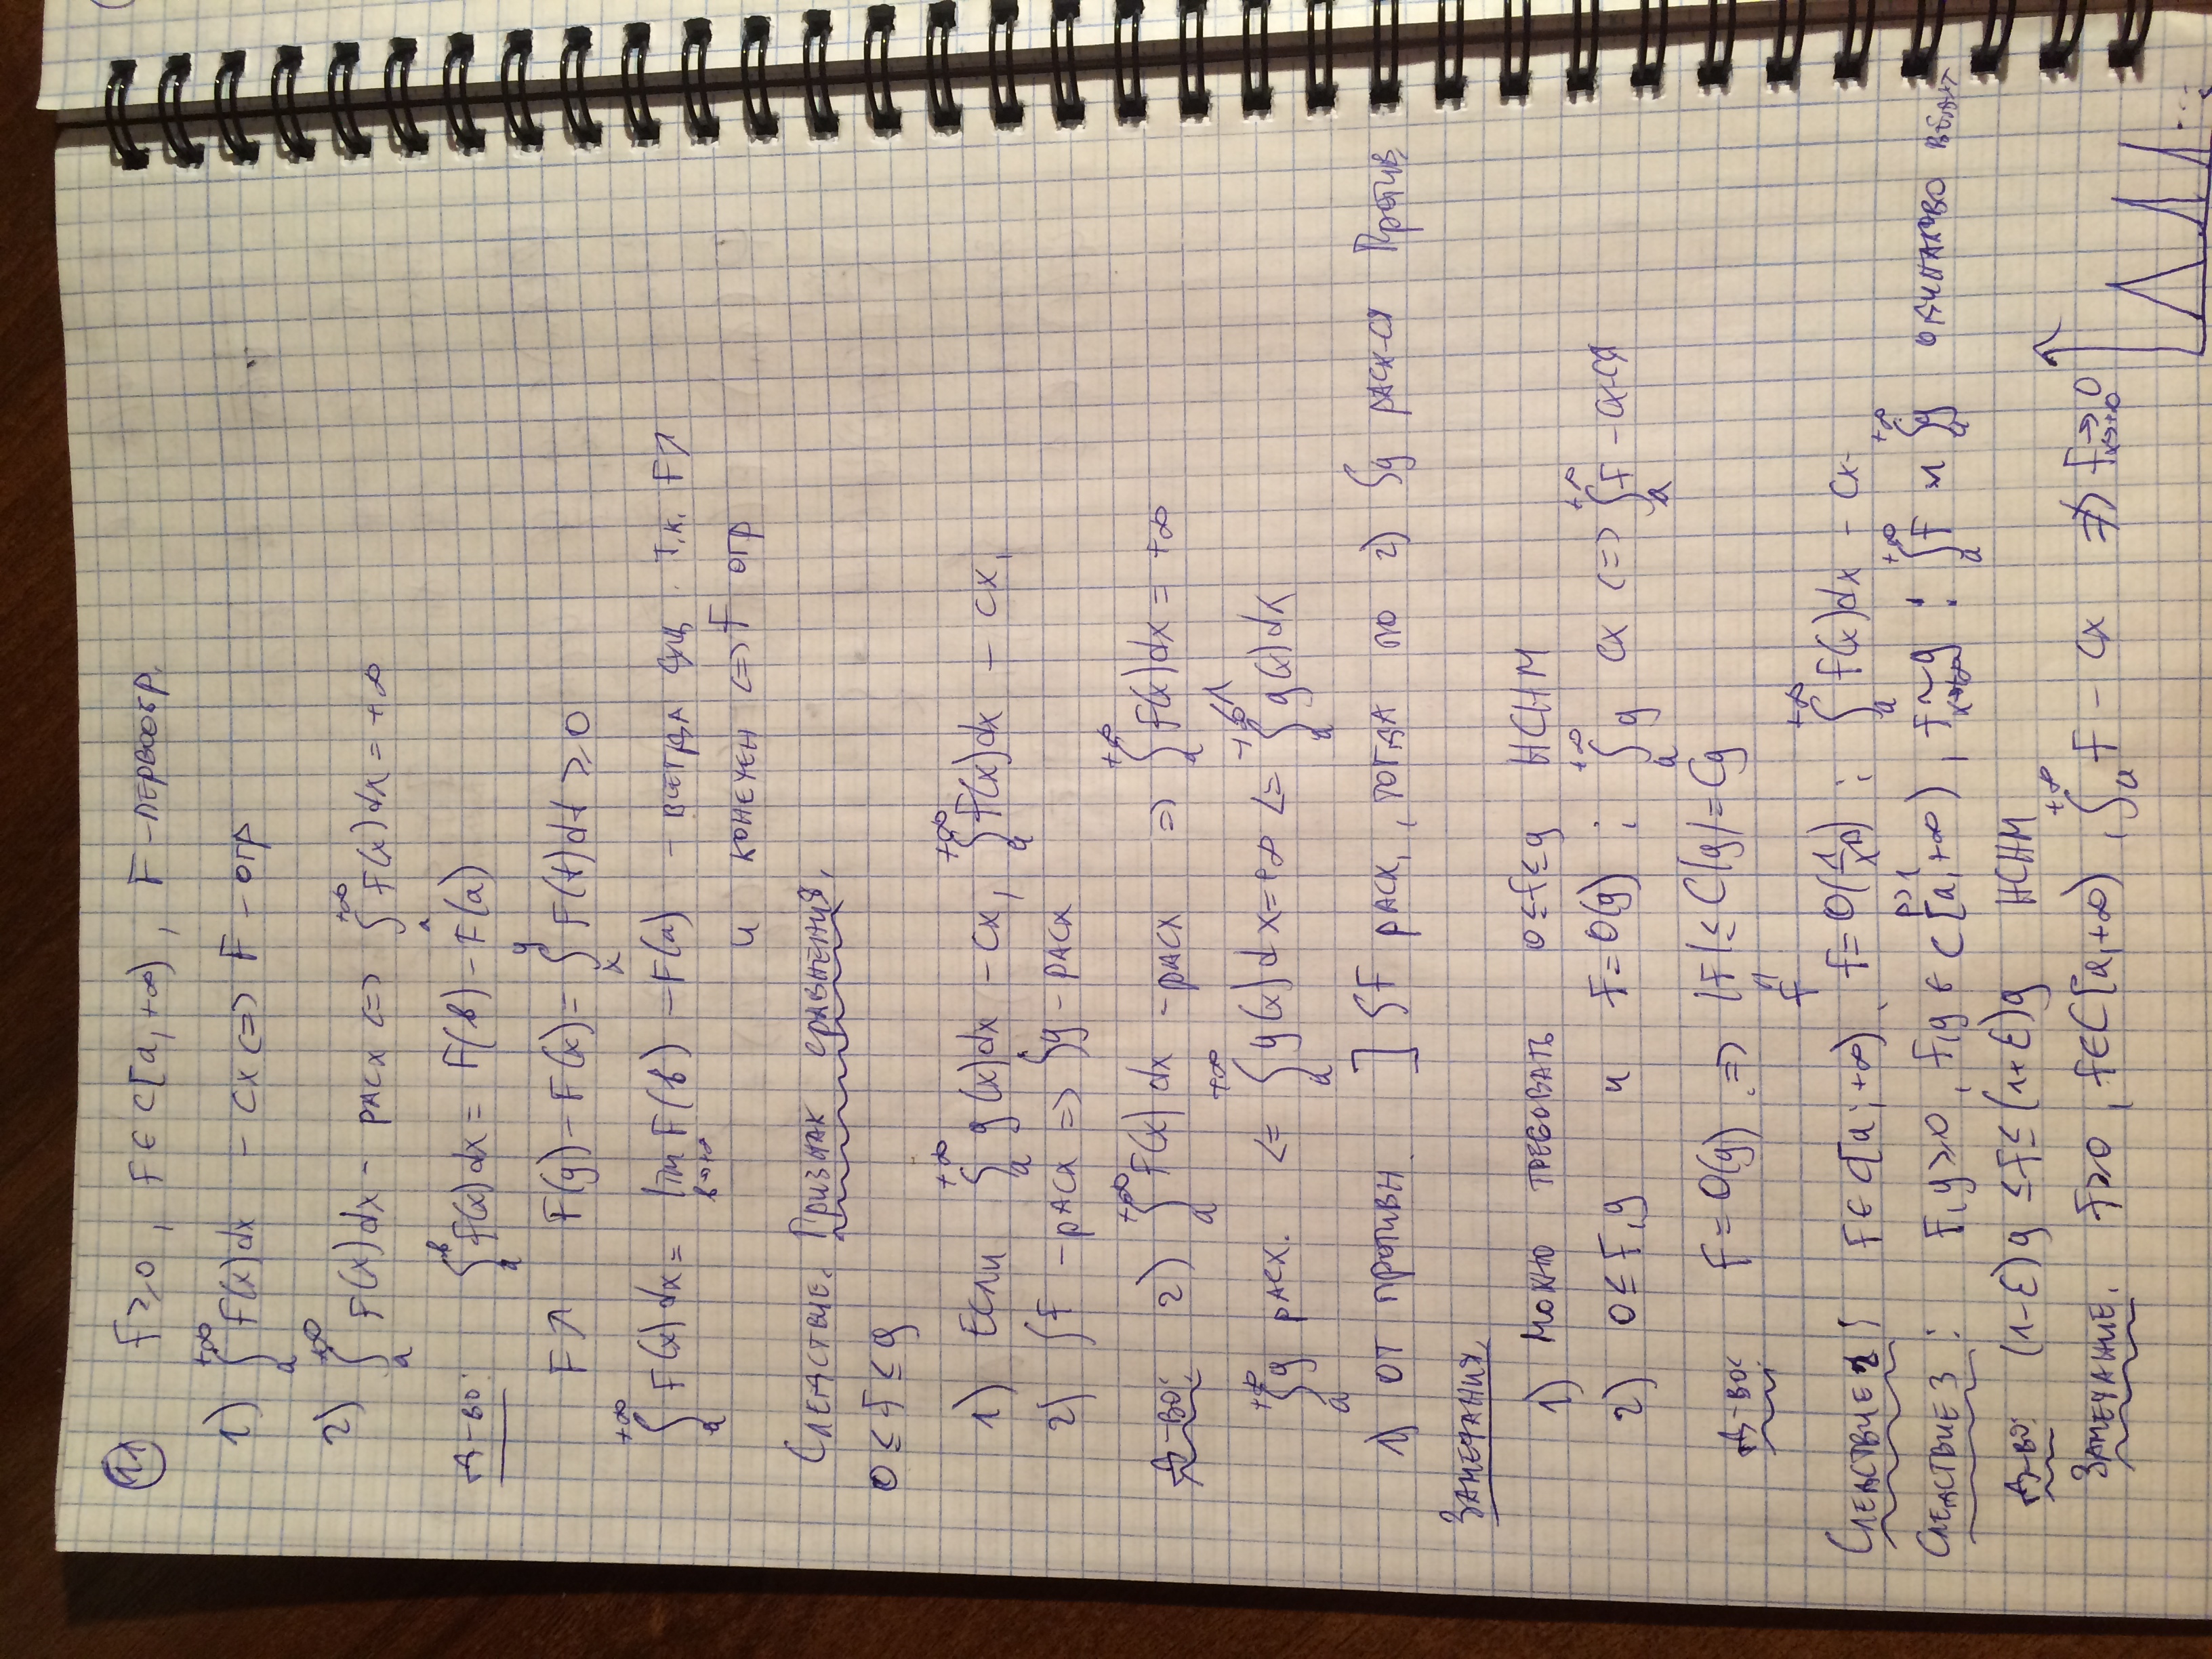 11 f ≥ 0, f ∈ C[a, +∞), F - первообр.
1) ∫_a^{+∞} f(x)dx - сх <=> F - огр
2) ∫_a^{+∞} f(x)dx - расх <=> ∫_a^{+∞} f(x)dx = +∞
Д-во: ∫_a^b f(x)dx = F(b) - F(a)
F↗ F(y) - F(x) = ∫_x^y f(t)dt ≥ 0
∫_a^{+∞} f(x)dx = lim_{b→+∞} F(b) - F(a) - всегда сущ. т.к. F↗
и конечен <=> F огр
Следствие. Признак сравнения.
0 ≤ f ≤ g
1) Если ∫_a^{+∞} g(x)dx - сх, ∫_a^{+∞} f(x)dx - сх.
2) ∫f - расх => ∫g - расх
Д-во: 2) ∫_a^{+∞} f(x)dx - расх => ∫_a^{+∞} f(x)dx = +∞
≤
∫_a^{+∞} g расх. <= ∫_a^{+∞} g(x)dx = +∞ <= ∫_a^{+∞} g(x)dx
1) от противн. ] ∫f расх., тогда по 2) ∫g расх-ся Против
Замечания.
1) Можно требовать 0 ≤ f ≤ g НСНМ
2) 0 ≤ f, g и f = O(g) : ∫_a^{+∞} g сх <=> ∫_a^{+∞} f - сх-ся
Д-во: f = O(g) => |f| ≤ C|g| = Cg
f
Следствие 2: f ∈ C[a; +∞), f = O(1/x^p) : ∫_a^{+∞} f(x)dx - сх-
p>1
Следствие 3: f, g ≥ 0, f, g ∈ C[a, +∞), f ~_{x→+∞} g : ∫_a^{+∞} f и ∫_a^{+∞} g одинаково
Д-во: (1-ε)g ≤ f ≤ (1+ε)g НСНМ
Замечание. f ≥ 0, f ∈ C[a, +∞), ∫_a^{+∞} f - сх ≠> f →_{x→+∞} 0